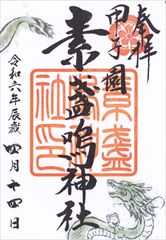 奉拝
甲子園
素盞嗚神社
令和六年辰歳
四月十四日
素盞
社印